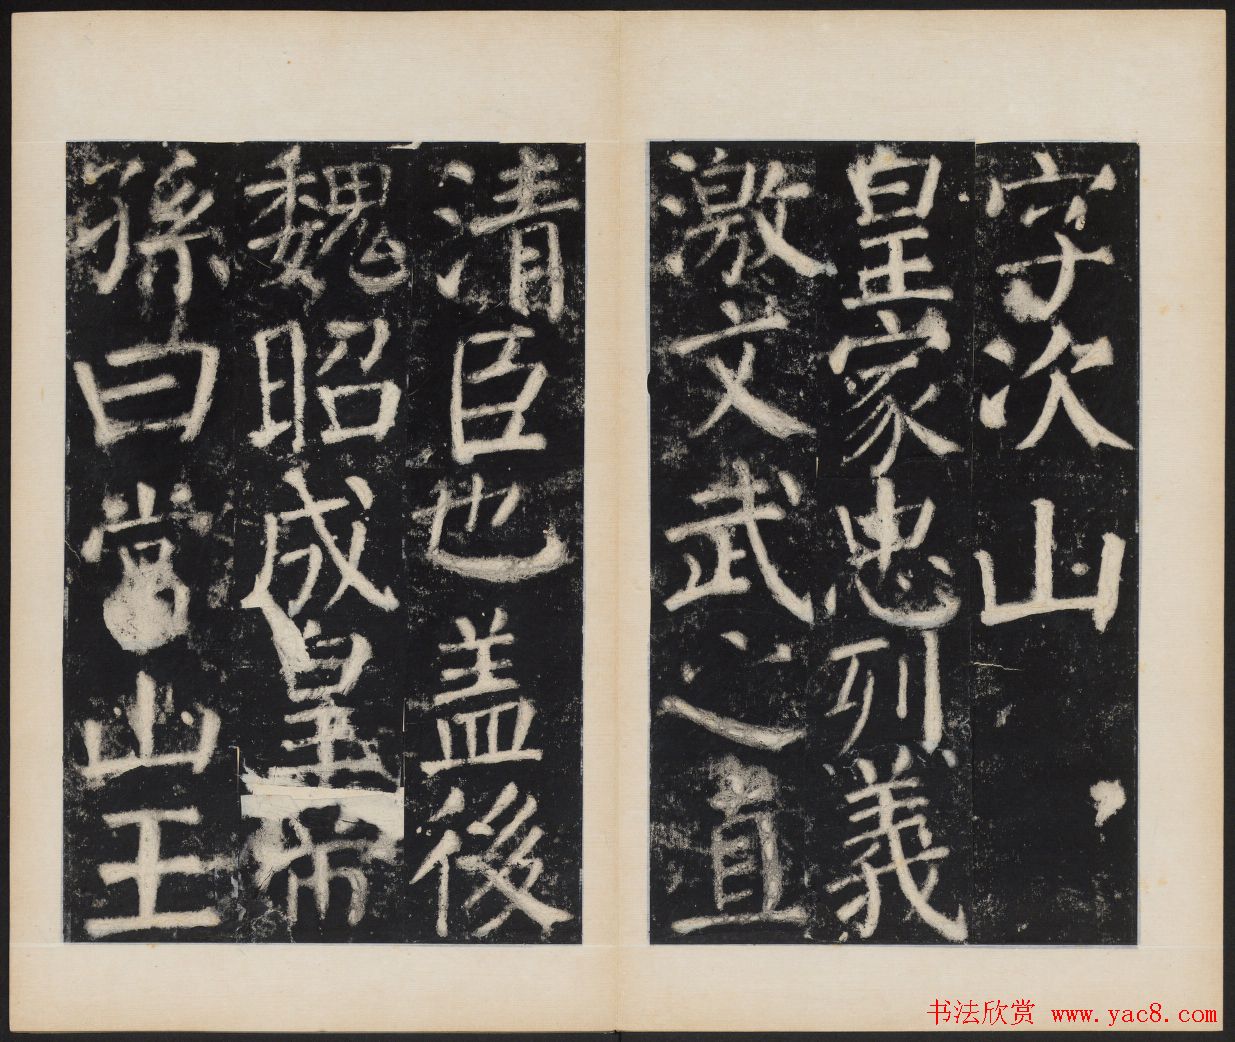 字次山
皇家忠烈義
激文武之直
清臣也盖後
魏昭成皇帝
孫曰常山王
书法欣赏 www.yac8.com